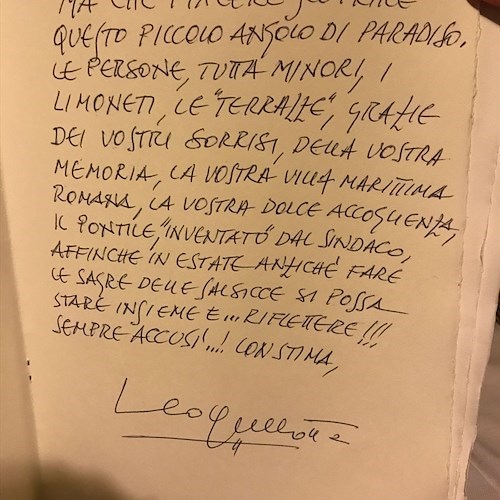 MA CHE PIACERE SCOPRIRE
QUESTO PICCOLO ANGOLO DI PARADISO.
LE PERSONE, TUTTA MINORI, I
LIMONETI, LE "TERRAZZE", GRAZIE
DEI VOSTRI SORRISI, DELLA VOSTRA
MEMORIA, LA VOSTRA VILLA MARITTIMA
ROMANA, LA VOSTRA DOLCE ACCOGLIENZA,
IL PONTILE, "INVENTATO" DAL SINDACO,
AFFINCHE IN ESTATE ANZICHÉ FARE
LE SAGRE DELLE SALSICCE SI POSSA
STARE INSIEME E... RIFLETTERE!!!
SEMPRE ACCOSÌ...! CON STIMA,
Leo Gullotta